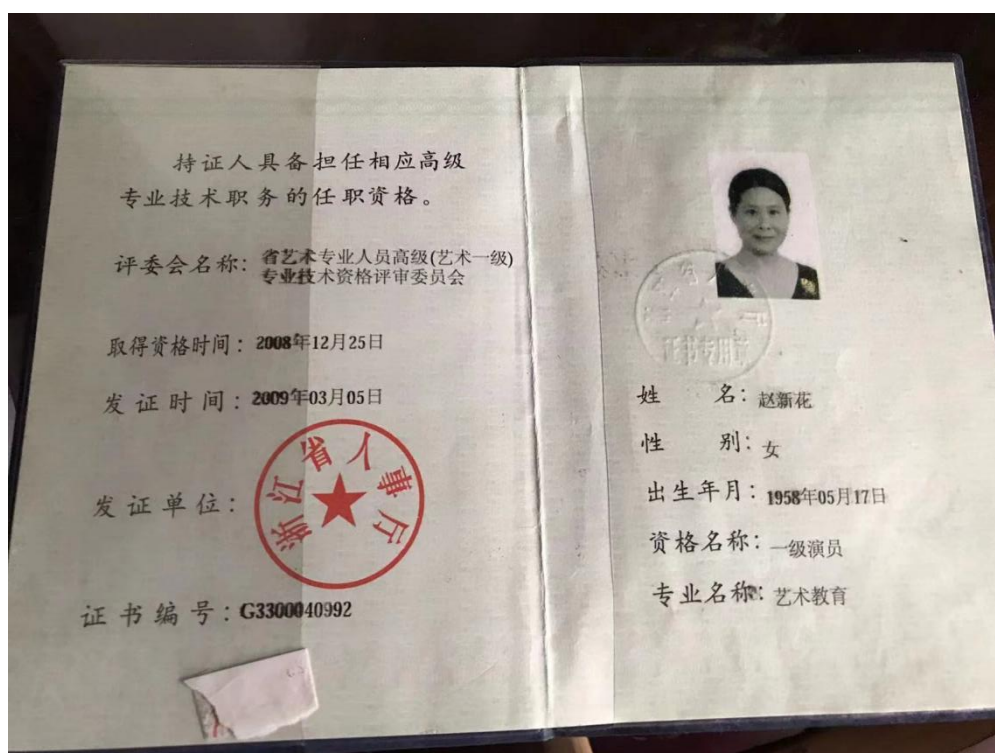 持证人具备担任相应高级
专业技术职务的任职资格。
评委会名称：省艺术专业人员高级(艺术一级)
专业技术资格评审委员会
取得资格时间：2008年12月25日
发证时间：2009年03月05日
发证单位：
浙江省人事厅
证书编号：G3300040992
证书专用章
姓名：赵新花
性别：女
出生年月：1958年05月17日
资格名称：一级演员
专业名称：艺术教育